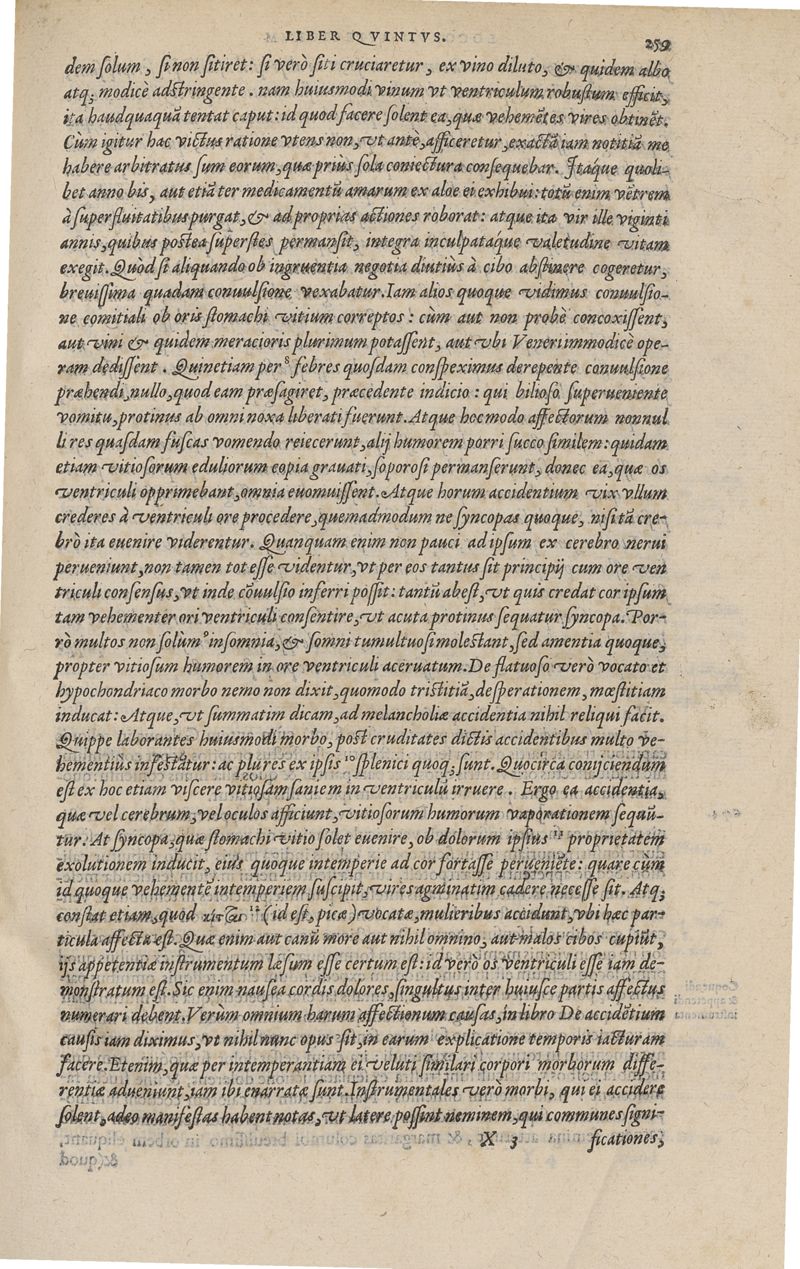 LIBER QVINTVS. 259
dem ſolum, ſi non ſitiret: ſi verò ſiti cruciaretur, ex vino diluto, & quidem albo
atq; modicè adſtringente. nam huiuſmodi vinum vt ventriculum robuſtum efficit,
ita haudquaquã tentat caput: id quod facere ſolent ea, quæ vehemẽtes vires obtinẽt.
Cùm igitur hac victus ratione vtens non, vt antè, afficeretur, exactã iam notitiã me
habere arbitratus ſum eorum, quæ priùs ſola coniectura conſequebar. Itaque quoli-
bet anno bis, aut etiã ter medicamentũ amarum ex aloe ei exhibui: totũ enim vẽtrem
à ſuperfluitatibus purgat, & ad proprias actiones roborat: atque ita vir ille viginti
annis, quibus poſtea ſuperſtes permanſit, integra inculpatáque valetudine vitam
exegit. Quòd ſi aliquando ob ingruentia negotia diutiùs à cibo abſtinere cogeretur,
breuiſſima quadam conuulſione vexabatur. Iam alios quoque vidimus conuulſio-
ne comitiali ob oris ſtomachi vitium correptos: cùm aut non probè concoxiſſent,
aut vini & quidem meracioris plurimum potaſſent, aut vbi Veneri immodicè ope-
ram dediſſent. Quinetiam per 8 febres quoſdam conſpeximus derepente conuulſione
præhendi, nullo, quod eam præſagiret, præcedente indicio: qui bilioſo ſuperueniente
vomitu, protinus ab omni noxa liberati fuerunt. Atque hoc modo affectorum nonnul
li res quaſdam fuſcas vomendo reiecerunt, alij humorem porri ſucco ſimilem: quidam
etiam vitioſorum eduliorum copia grauati, ſoporoſi permanſerunt, donec ea, quæ os
ventriculi opprimebant, omnia euomuiſſent. Atque horum accidentium vix vllum
crederes à ventriculi ore procedere, quemadmodum ne ſyncopas quoque, niſi tã cre-
brò ita euenire viderentur. Quanquam enim non pauci ad ipſum ex cerebro nerui
perueniunt, non tamen tot eſſe videntur, vt per eos tantus ſit principij cum ore ven
triculi conſenſus, vt inde cõuulſio inferri poſſit: tantũ abeſt, vt quis credat cor ipſum
tam vehementer ori ventriculi conſentire, vt acuta protinus ſequatur ſyncopa. Por-
rò multos non ſolùm 9 inſomnia, & ſomni tumultuoſi moleſtant, ſed amentia quoque,
propter vitioſum humorem in ore ventriculi aceruatum. De flatuoſo verò vocato et
hypochondriaco morbo nemo non dixit, quomodo triſtitiã, deſperationem, mœſtitiam
inducat: Atque, vt ſummatim dicam, ad melancholiæ accidentia nihil reliqui facit.
Quippe laborantes huiuſmodi morbo, poſt cruditates dictis accidentibus multo ve-
hementiùs infeſtãtur: ac plures ex ipſis 10 ſplenici quoq; ſunt. Quocirca conijciendum
eſt ex hoc etiam viſcere vitioſam ſaniem in ventriculũ irruere. Ergo ea accidentia,
quæ vel cerebrum, vel oculos afficiunt, vitioſorum humorum vaporationem ſequũ-
tur. At ſyncopa, quæ ſtomachi vitio ſolet euenire, ob dolorum ipſius proprietatem
exolutionem inducit, eius quoque intemperie ad cor fortaſſe perueniẽte: quare cùm
id quoque vehementẽ intemperiem ſuſcipit, vires agminatim cadere neceſſe ſit. Atq;
conſtat etiam, quod (id eſt, picæ) vocatæ, mulieribus accidunt, vbi hæc par-
ticula affecta eſt. Quæ enim aut canũ more aut nihil omnino, aut malos cibos cupiũt,
ijs appetentiæ inſtrumentum læſum eſſe certum eſt: id verò os ventriculi eſſe iam de-
monſtratum eſt. Sic enim nauſea cordis dolores, ſingultus inter huiuſce partis affectus
numerari debent. Verùm omnium harum affectionum cauſas, in libro De accidẽtium
cauſis iam diximus, vt nihil nunc opus ſit, in earum explicatione temporis iacturam
facere. Etenim, quæ per intemperantiam ei veluti ſimilari corpori morborum diffe-
rentiæ adueniunt, iam ibi enarratæ ſunt. Inſtrumentales verò morbi, qui ei accidere
ſolent, adeo manifeſtas habent notas, vt latere poſſint neminem, qui communes ſigni-
X 3 ficationes,